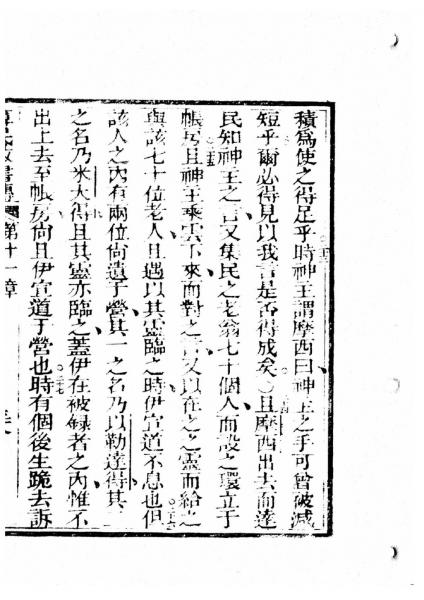 積為使之得足乎時神主謂摩西曰神主之手可曾被減
短乎爾必得見以我言是否得成矣○且摩西出去而達
民知神主之言又集民之老翁七十個人而設之環立于
帳房且神主乘雲下來而對之言又以在之之靈而給之
與該七十位老人且遇以其靈臨之時伊宣道不息也但
該人之內有兩位尚遺于營其一之名乃以勒達得其
之名乃米大得且其靈亦臨之蓋伊在被錄者之內惟不
出上去至帳房尚且伊宣道于營也時有個後生跪去訴
書傳 第十一章